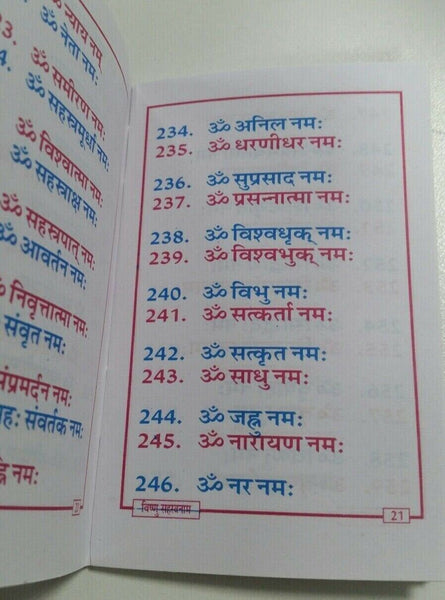 न्याय नम:
ॐ नेता नम:
ॐ समीरण नम:
ॐ सहस्त्रमूर्धा नम:
ॐ विश्वात्मा नम:
ॐ सहस्त्राक्ष नम:
ॐ सहस्त्रपात् नम:
ॐ आवर्तन नम:
ॐ निवृत्तात्मा नम:
संवृत नम:
संप्रमर्दन नम:
संवर्तक नम:
नम:
234. ॐ अनिल नम:
235. ॐ धरणीधर नम:
236. ॐ सुप्रसाद नम:
237. ॐ प्रसन्नात्मा नम:
238. ॐ विश्वधृक् नम:
239. ॐ विश्वभुक् नम:
240. ॐ विभु नम:
241. ॐ सत्कर्ता नम:
242. ॐ सत्कृत नम:
243. ॐ साधु नम:
244. ॐ जह्नु नम:
245. ॐ नारायण नम:
246. ॐ नर नम:
विष्णु सहस्रनाम
21